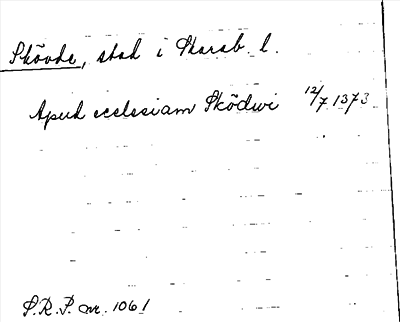 Skövde, stad i Skarab. l.
Apud ecclesiam Sködwi 12/7 1373
S.R.P. nr. 1061